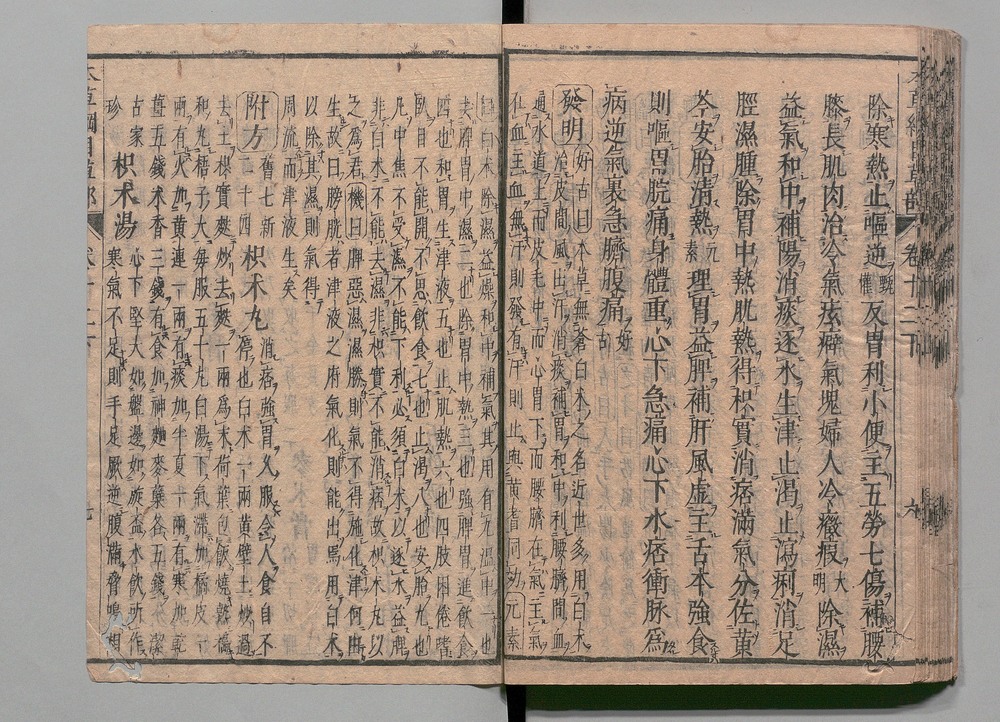 除寒熱止嘔逆甄權反胃利小便主五勞七傷補腰
膝長肌肉治冷氣痃癖氣塊婦人冷癥瘕大明除濕
益氣和中補陽消痰逐水生津止渴止瀉痢消足
脛濕腫除胃中熱肌熱得枳實消痞滿氣分佐黄
芩安胎清熱元素理胃益脾補肝風虚主舌本強食
則嘔胃脘痛身體重心下急痛心下水痞衝脈為
病逆氣裏急臍腹痛好古
發明好古曰本草無蒼白朮之名近世多用白朮
治皮間風出汗消痰補胃和中利腰臍間血
通水道上而皮毛中而心胃下而腰臍在氣主氣
在血主血無汗則發有汗則止與黄耆同功元素
曰白朮除濕益燥和中補氣其用有九温中一也
去脾胃中濕二也除胃中熱三也強脾胃進飲食
四也和胃生津液五也止肌熱六也四肢困倦嗜
臥目不能開不思飲食七也止渴八也安胎九也
凡中焦不受濕不能下利必須白朮以逐水益脾
非白朮不能去濕非枳實不能消痞故枳朮丸以
之為君機曰脾惡濕濕勝則氣不得施化津何由
生故曰膀胱者津液之府氣化則能出焉用白朮
以除其濕則氣得
周流而津液生矣
附方舊七新二十四枳朮丸消痞強胃久服令人食自不
停也白朮一兩黄壁土炒過
去土枳實麩炒去麩一兩為末荷葉包飯燒熟擣
和丸梧子大每服五十丸白湯下氣滯加橘皮一
兩有火加黄連一兩有痰加半夏一兩有寒加乾
薑五錢木香三錢有食加神麴麥蘗各五錢潔
古家珍枳朮湯心下堅大如盤邊如旋盃水飲所作
寒氣不足則手足厥逆腹滿脅鳴相